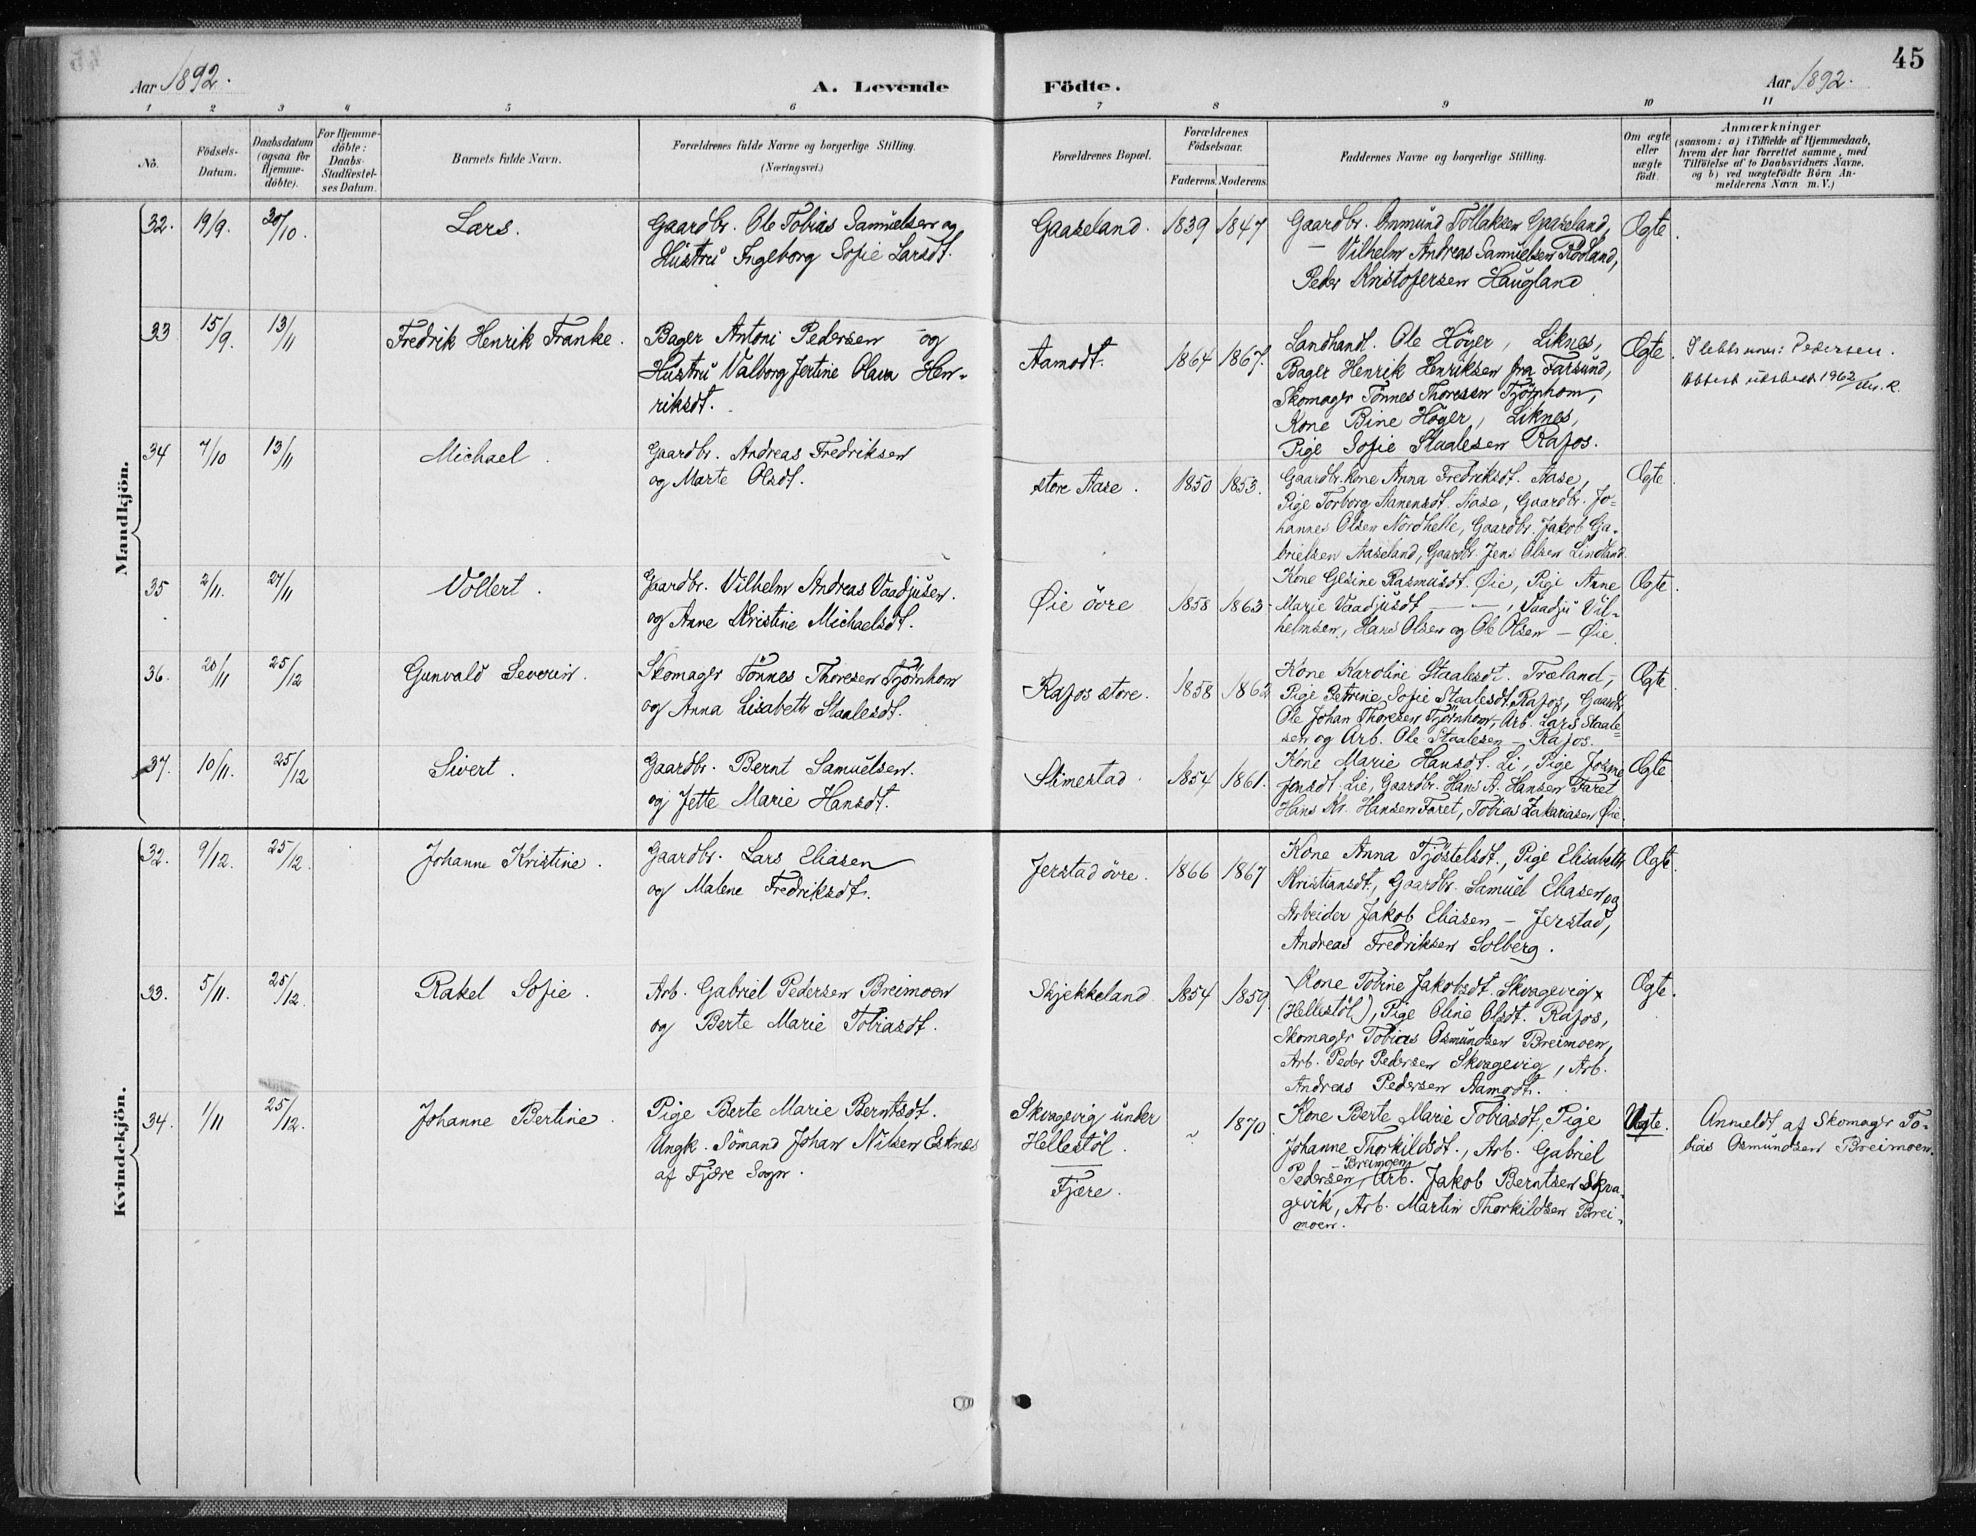 45
Aar 1892.
A. Levende Födte.
Aar 1892.
1 2 3 4 5 6 7 8 9 10 11
No.
Födsels-
Datum.
Daabsdatum
(ogsaa för
Hjemme-
döbte).
For Hjemme-
döbte:
Daabs-
Stadfæstel-
ses Datum.
Barnets fulde Navn.
Forældrenes fulde Navne og borgerlige Stilling.
(Næringsvei.)
Forældrenes Bopæl.
Forældrenes
Födselsaar.
Faderens. Moderens.
Faddernes Navne og borgerlige Stilling.
Om ægte
eller
uægte
födt.
Anmærkninger
(saasom: a) i Tilfælde af Hjemmedaab,
hvem der har forrettet samme, med
Tilföielse af to Daabsvidners Navne,
og b) ved uægtefödte Börn An-
melderens Navn m. V.)
Mandkjön.
32. 19/9. 30/10. Lars.
Gaardbr. Ole Tobias Samuelsen og
Hustru Ingeborg Sofie Larsdt.
Gaaseland. 1839 1847
Gaardbr. Onmund Tollaksen Gaaseland,
— Vilhelm Andreas Samuelsen Rödland,
Peder Kristofersen Haugland
Ægte.
33 15/9. 13/11 Fredrik Henrik Franke.
Bager Antoni Pedersen og
Hustru Valborg Jertine Olava Hen-
riksdt.
Aamodt. 1864 1867.
Landhandl. Ole Höyer, Liknes,
Bager Henrik Henriksen fra Farsund,
Skomager Tönnes Thoresen Tjörnhom,
Kone Bine Höyer, Liknes,
Pige Sofie Staalesen Rafos.
Ægte.
Slektsnavn: Pedersen.
Attest utstedt 1962
34 7/10 13/11 Michael.
Gaardbr. Andreas Fredriksen
og Marte Olsdt.
store Aase. 1850 1853.
Gaardbr. Kone Anna Fredriksdt. Aase,
Pige Torborg Aanensdt. Aase, Gaardbr. Jo-
hannes Olsen Nordhelle, Gaardbr. Jakob Ga-
brielsen Aaseland, Gaardbr. Jens Olsen Lindland.
Ægte.
35 2/11. 27/11 Vollert.
Gaardbr. Vilhelm Andreas Vaadjusen.
og Anne Kristine Michaelsdt.
Øie övre 1858 1863.
Kone Gesine Rasmusdt. Øie, Pige Anne
Marie Vaadjusdt — — , Vaadju Vil-
helmsen, Hans Olsen og Ole Olsen — Øie
Ægte.
36. 20/11 25/12 Gunvald Severin.
Skomager Tönnes Thoresen Tjörnhom
og Anna Lisabeth Staalesdt.
Rafos store. 1858 1862
Kone Karoline Staalesdt. Træland,
Pige Petrine Sofie Staalesdt. Rafos, Gaardbr.
Ole Johan Thoresen Tjörnhom, Arb. Lars Staale-
sen og Arb. Ole Staalesen — Rafos.
Ægte.
37. 10/11. 25/12 Sivert.
Gaardbr. Bernt Samuelsen.
og Jette Marie Hansdt.
Slimestad. 1854 1861.
Kone Marie Hansdt. Li, Pige Josine
Jensdt. Lie, Gaardbr. Hans A. Hansen Faret
Hans Kr. Hansen Faret, Tobias Zakariasen Øie.
Ægte.
Kvindekjön.
32. 9/12. 25/12. Johanne Kristine.
Gaardbr. Lars Eliasen
og Malene Fredriksdt.
Jerstad övre. 1866 1867
Kone Anna Tjöstelsdt., Pige Elisabeth
Kristiansdt., Gaardbr. Samuel Eliasen og
Arbeider Jakob Eliasen — Jerstad,
Andreas Fredriksen Solberg.
Ægte.
33. 5/11. 25/12. Rakel Sofie.
Arb. Gabriel Pedersen Breimoen
og Berte Marie Tobiasdt.
Skjekkeland. 1854 1859.
Kone Tobine Jakobsdt. Skvagevig
(Hellestöl), Pige Oline Olsdt. Rafos,
Skomager Tobias Osmundsen Breimoen,
Arb. Peder Pedersen Skvagevig, Arb.
Andreas Pedersen Aamodt.
Ægte.
34. 1/11 25/12. Johanne Bertine.
Pige Berte Marie Berntsdt.
Ungk. Sömand Johan Nilsen Esknes
af Fjære Sogn.
Skvagevig under
Hellestöl.
Fjære.
1870.
Kone Berte Marie Tobiasdt, Pige
Johanne Thorkildsdt., Arb. Gabriel
Pedersen Breimoen, Arb. Jakob Berntsen Skva-
gevik, Arb. Martin Thorkildsen Brei-
moen.
Uægte.
Anmeldt af Skomager To-
bias Osmundsen Breimoen.